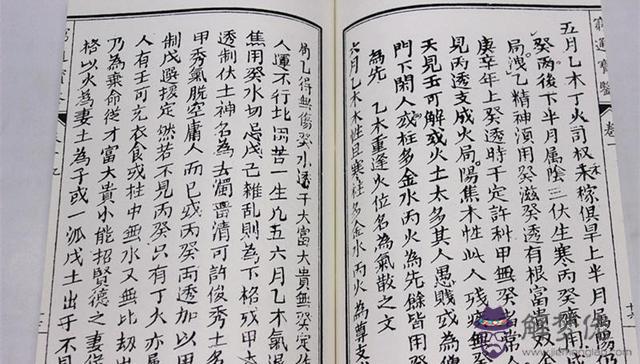 窮通寶鑑
卷一
五月乙木丁火司权禾稼俱旱上半月属陽仍用
癸丙後下半月属陰三伏生寒丙癸齊用
局洩乙精神湏用癸滋癸透有根富貴双
庚辛年上癸透時干定許科甲無癸
見丙透支成火局陽焦木性此人残疾無癸
天見壬可解或火土太多其人愚賤或為僧
門下閑人或柱多金水丙火為先餘皆用
為先 乙木重逢火位名為氣散之文
六月乙木木性且寒柱多金水丙火為尊支
仍乙得無傷癸水透干大富大貴無癸定作
人運不行北困苦一生凡五六月乙木氣退
焦用癸水切忌戊己雜乱則為下格殘甲木
透制伏土神名為去濁畱清可許俊秀土
甲秀氣脱空庸人而已或丙癸两透加以甲
制戊選拔定然若不見丙癸只有丁火亦属
人有壬可充衣食或柱中無水又無比刼出
乃為棄命從才富大貴小能招賢德之妻從
格以火為妻土為子或一派戊土出于不見
解夢佬